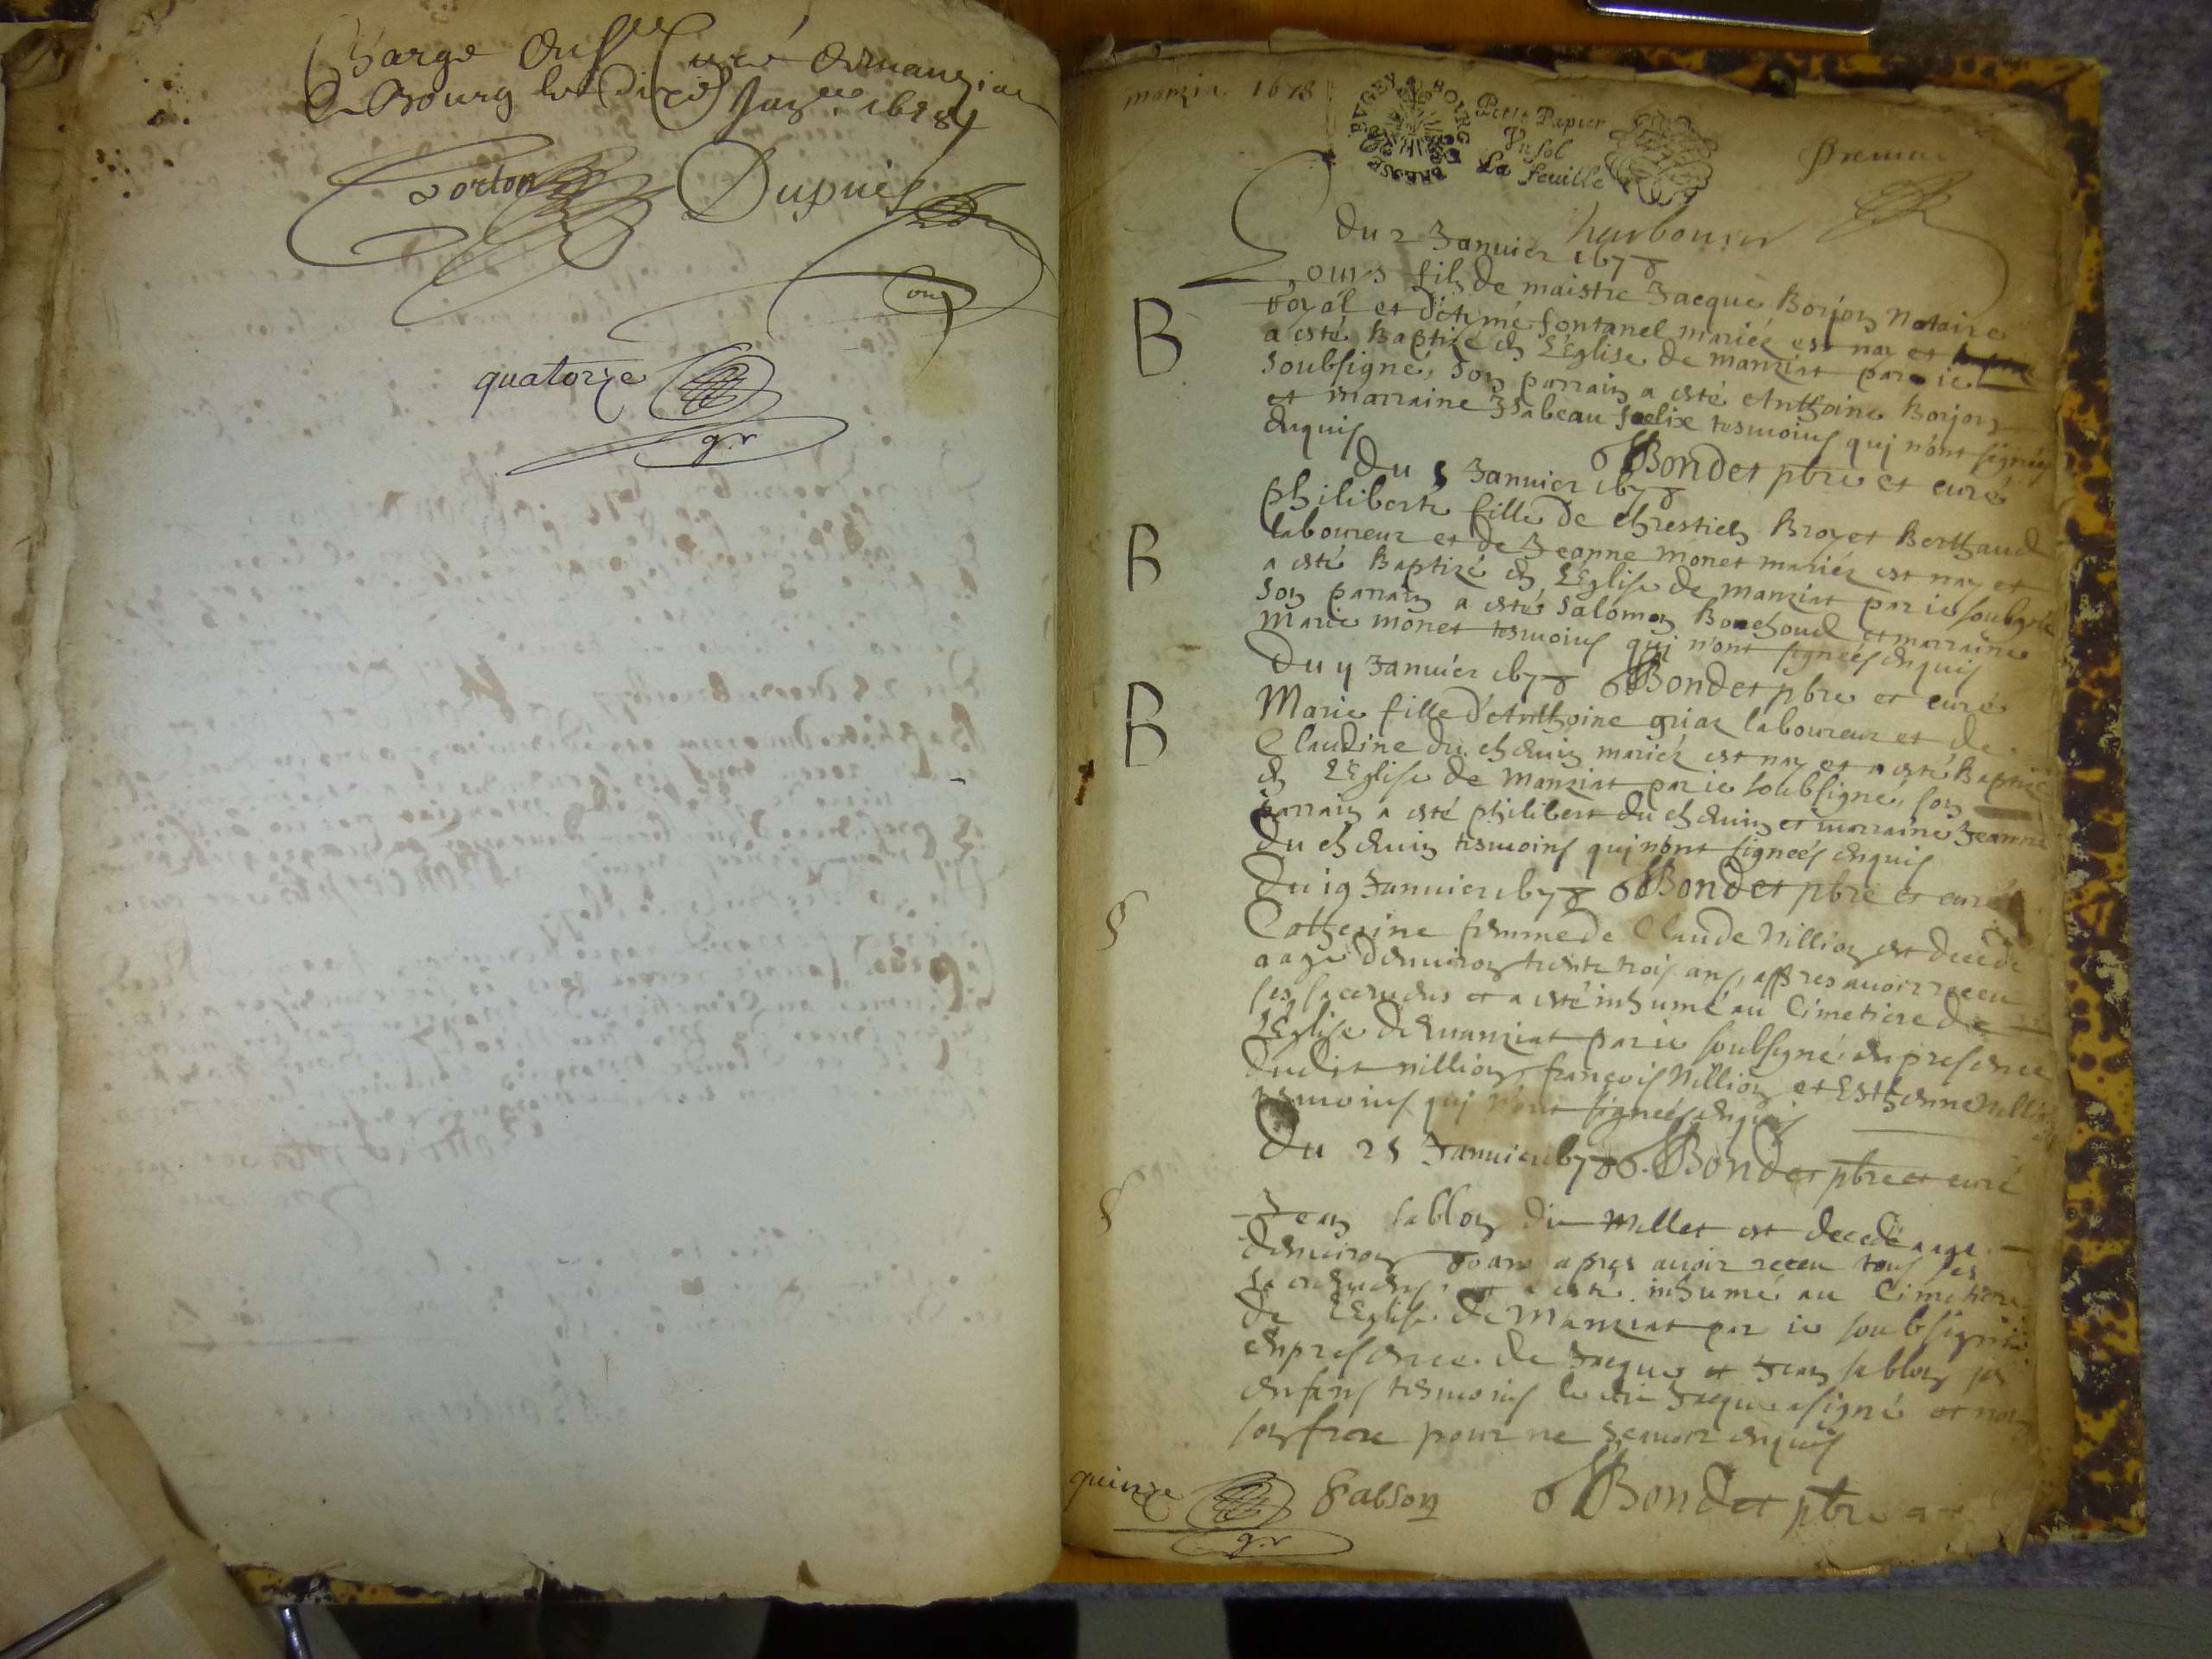 Charge du Sr Curé de manziat
a Bourg le dix Janr 1678
Dupuis
quatorze
gr
manzia 1678
BVGEY BOVRG BRESSE
Petit Papier
Vn sol
La feuille
premier
du 2 Januier 1678
Louys fils de maistre Jacque Borjon Notaire
royal et d'etiennette fontanel mariés est nay et
a esté Baptizé en L'Eglise de manziat par ie
soubsigné, son parrain a esté Anthoine Borjon
et marraine Isabeau felix tesmoins qui n'ont signés
enquis
Bondet pbre et curé
Du 5 Januier 1678
philiberte fille de chrestien Broyet Berthaud
laboureur et de Jeanne Monet mariéz est nay et
a esté Baptizé en L'Eglise de manziat par ie soubsigné
son parrain a esté Salomon Bouchoud et marraine
Marie monet tesmoins qui n'ont signées enquis
Du 9 Januier 1678 Bondet pbre et curé
B
B
B
Marie fille d'Anthoine griaz laboureur et de
Claudine du chenin mariéz est nay et a esté Baptizé
en L'Eglise de Manziat par ie soubsigné, son
parrain a esté philibert du chenin et marraine Jeanne
du chenin tesmoins qui n'ont signeés enquis
Du 19 Januier 1678 Bondet pbre et curé
Catherine femme de Claude Nillion est decedé
aagé d'enuiron trente trois ans, appres auoir receu
ses sacremens et a esté inhumé au Cimetiere de
L'Eglise de manziat par ie soubsigné en presence
dudit nillion, françois Nillion et Esthienne Nillion
tesmoins qui n'ont signeés enquis
Du 25 Januier 1678 Bondet pbre et curé
S
S
Jean sablon dit Millet est decedé aagé
d'enuiron 80 ans apres auoir receu tous ses
sacremens et a esté inhumé au Cimetiere
de L'Eglise de Manziat par ie soubsigné
en presence de Jacque et Jean sablon ses
enfans tesmoins le dit Jacque a signé et non
son frere pour ne scauoir enquis
quinze
gr
Sablon Bondet pbre et